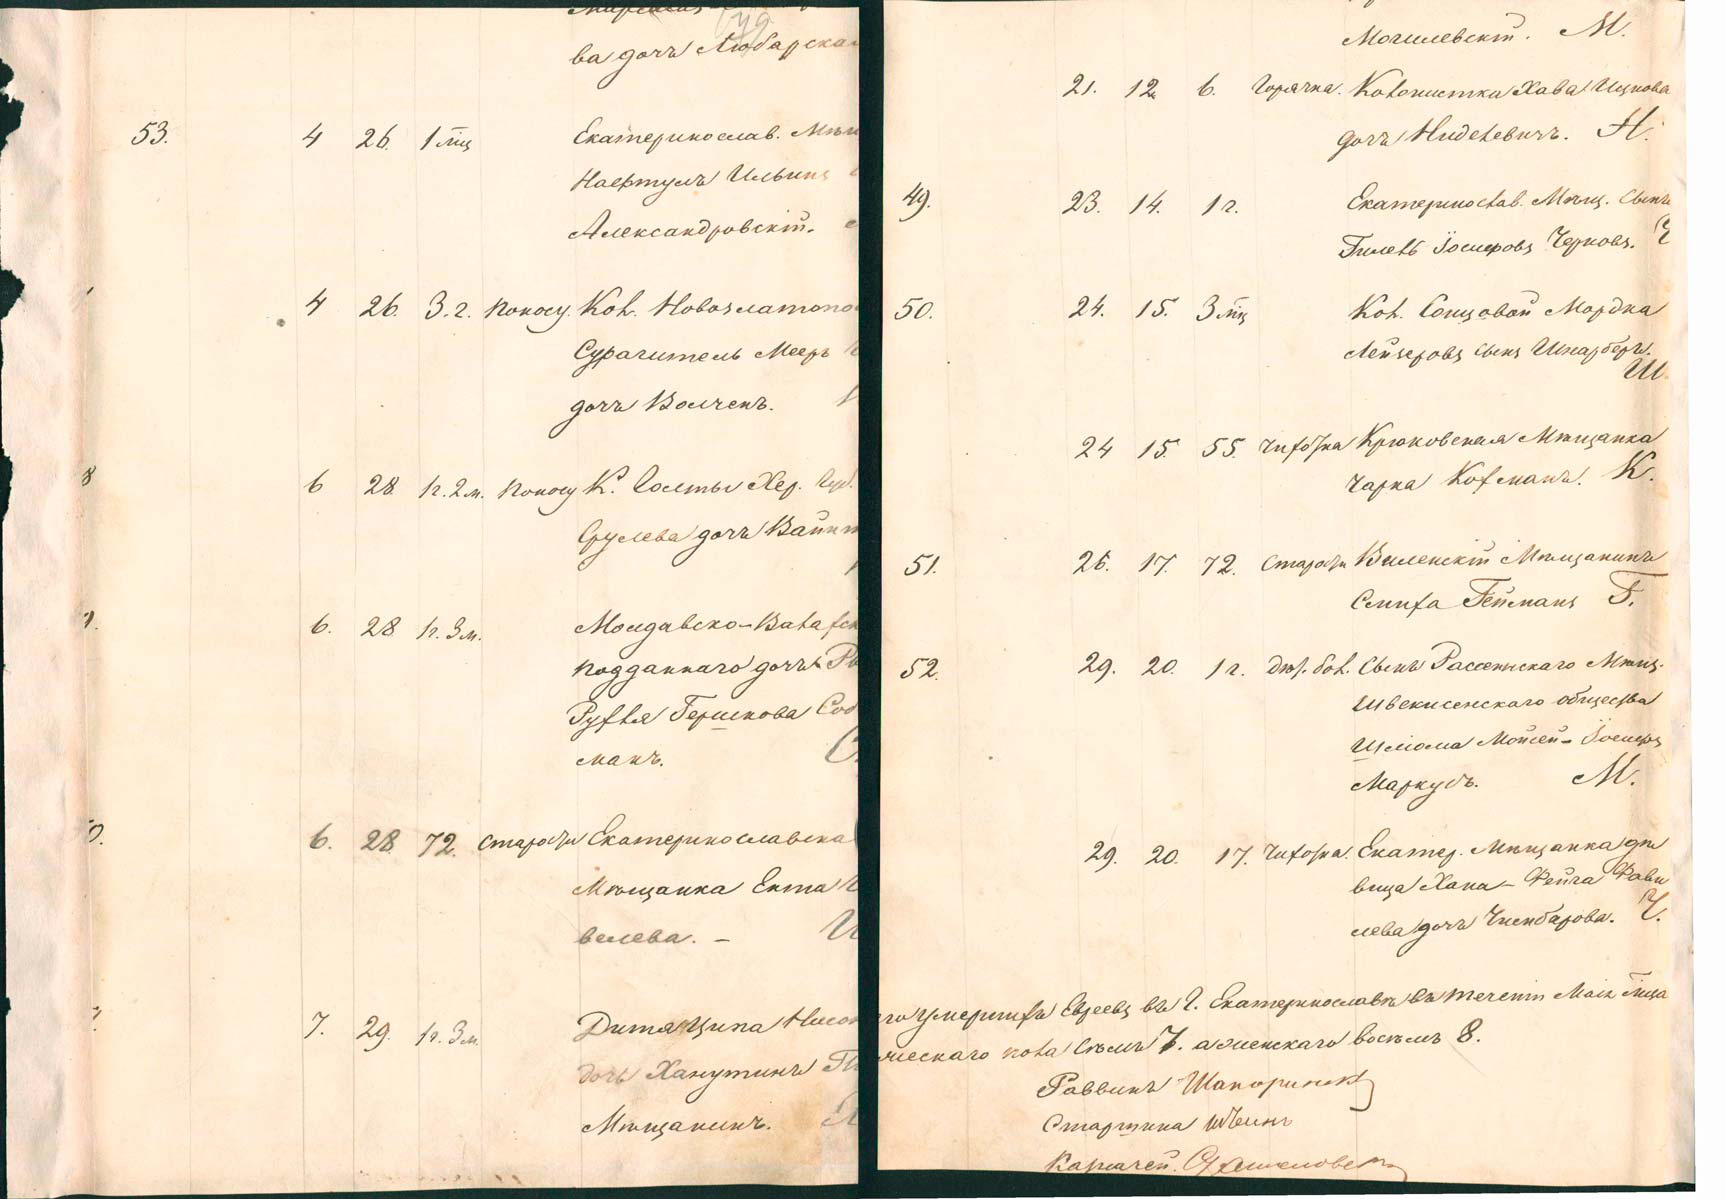 ва дочь Любарская
53. 4 26. 1 мц Екатеринослав. Мѣщ
Нафтулъ Ильинъ
Александровскій.
4 26. 3. г. поносу. Кол. Новозлатопо
Сурачитель Мееръ
дочь Волченъ.
8 6 28. 1 г. 2 м. поносу К. Голты Хер. Губ.
Срулева дочь Вайн
6. 28 1 г. 3 м. Молдавско-Валахск
подданнаго дочь
Рухля Гершкова Соб
манъ.
6. 28. 72. старости Екатеринославска
Мѣщанка Ента
велева. –
7. 29. 1 г. 3 м. Дитя Ципа
дочь Ханутинъ
Мѣщанинъ.
Могилевскій. М.
21. 12. 6. Горячка. Колонистка Хава Ицкова
дочь Ниделевичъ. Н.
49. 23. 14. 1 г. Екатеринослав. Мѣщ. сынъ
Гилель Іосифовъ Черновъ. Ч
50. 24. 15. 3 мц Кол. Солнцовой Мордка
Лейзеровъ сынъ Шпарберъ.
Ш.
24 15. 55. чахотка Крюковская Мѣщанка
Чарка Кофманъ. К.
51. 26. 17. 72. старости Виленскій Мѣщанинъ
Симха Гейманъ Г.
52. 29. 20. 1 г. дѣт. бол. сынъ Россіенскаго Мѣщ.
Швекшенскаго общества
Шлома Мойсей-Іосифъ
Маркусъ. М.
29. 20. 17. чахотка. Екатер. Мѣщанка дѣ
вица Хана-Фейга Фави
лева дочь Чимбарова. Ч.
го умершихъ Евреевъ въ г. Екатеринославѣ въ теченіи Маія мѣсяца
ческаго пола семь 7. а женскаго восемь 8.
Раввинъ Шапоринскій
Старшина
Казначей.